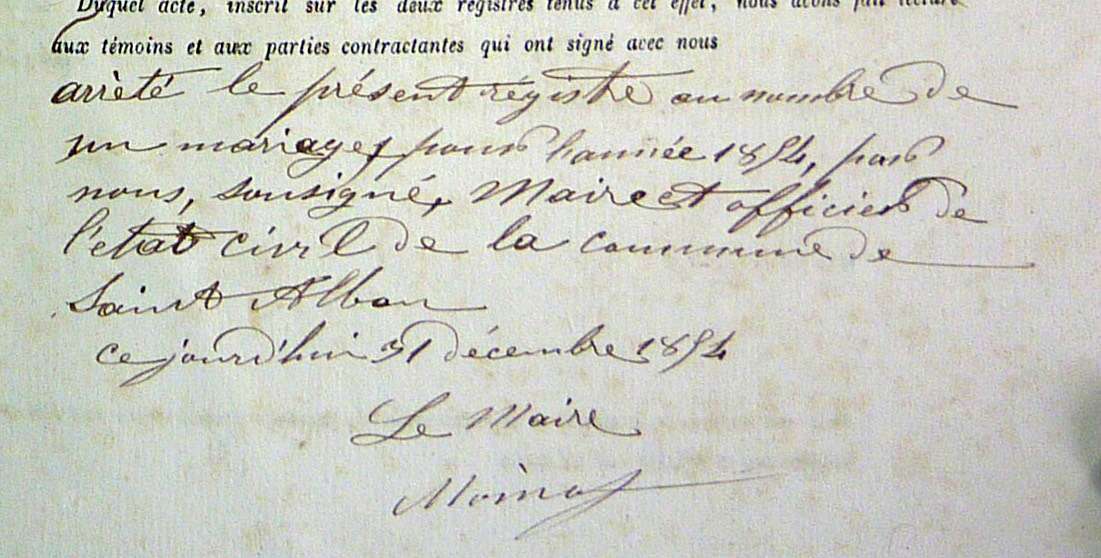 Duquel acte, inscrit sur les deux registres tenus à cet effet, nous avons fait lecture
aux témoins et aux parties contractantes qui ont signé avec nous
arrèté le présent régistre au nombre de
un mariages pour l'année 1854, par
nous, sousigné, Maire et officier de
l'etat civil de la commune de
Saint Alban
ce jourd'hui 31 décembre 1854
Le Maire